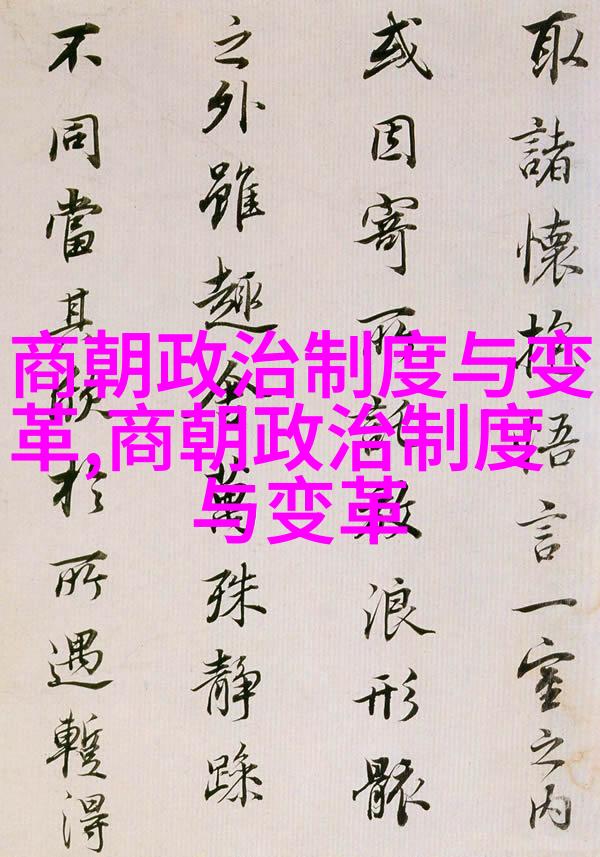 商朝政治制度与变
革,商朝政治制度
与变革
取諸懷抱悟言一室之内
或因寄所託放浪形骸
之外雖趣舍萬殊靜躁
不同當其欣於所遇蹔得